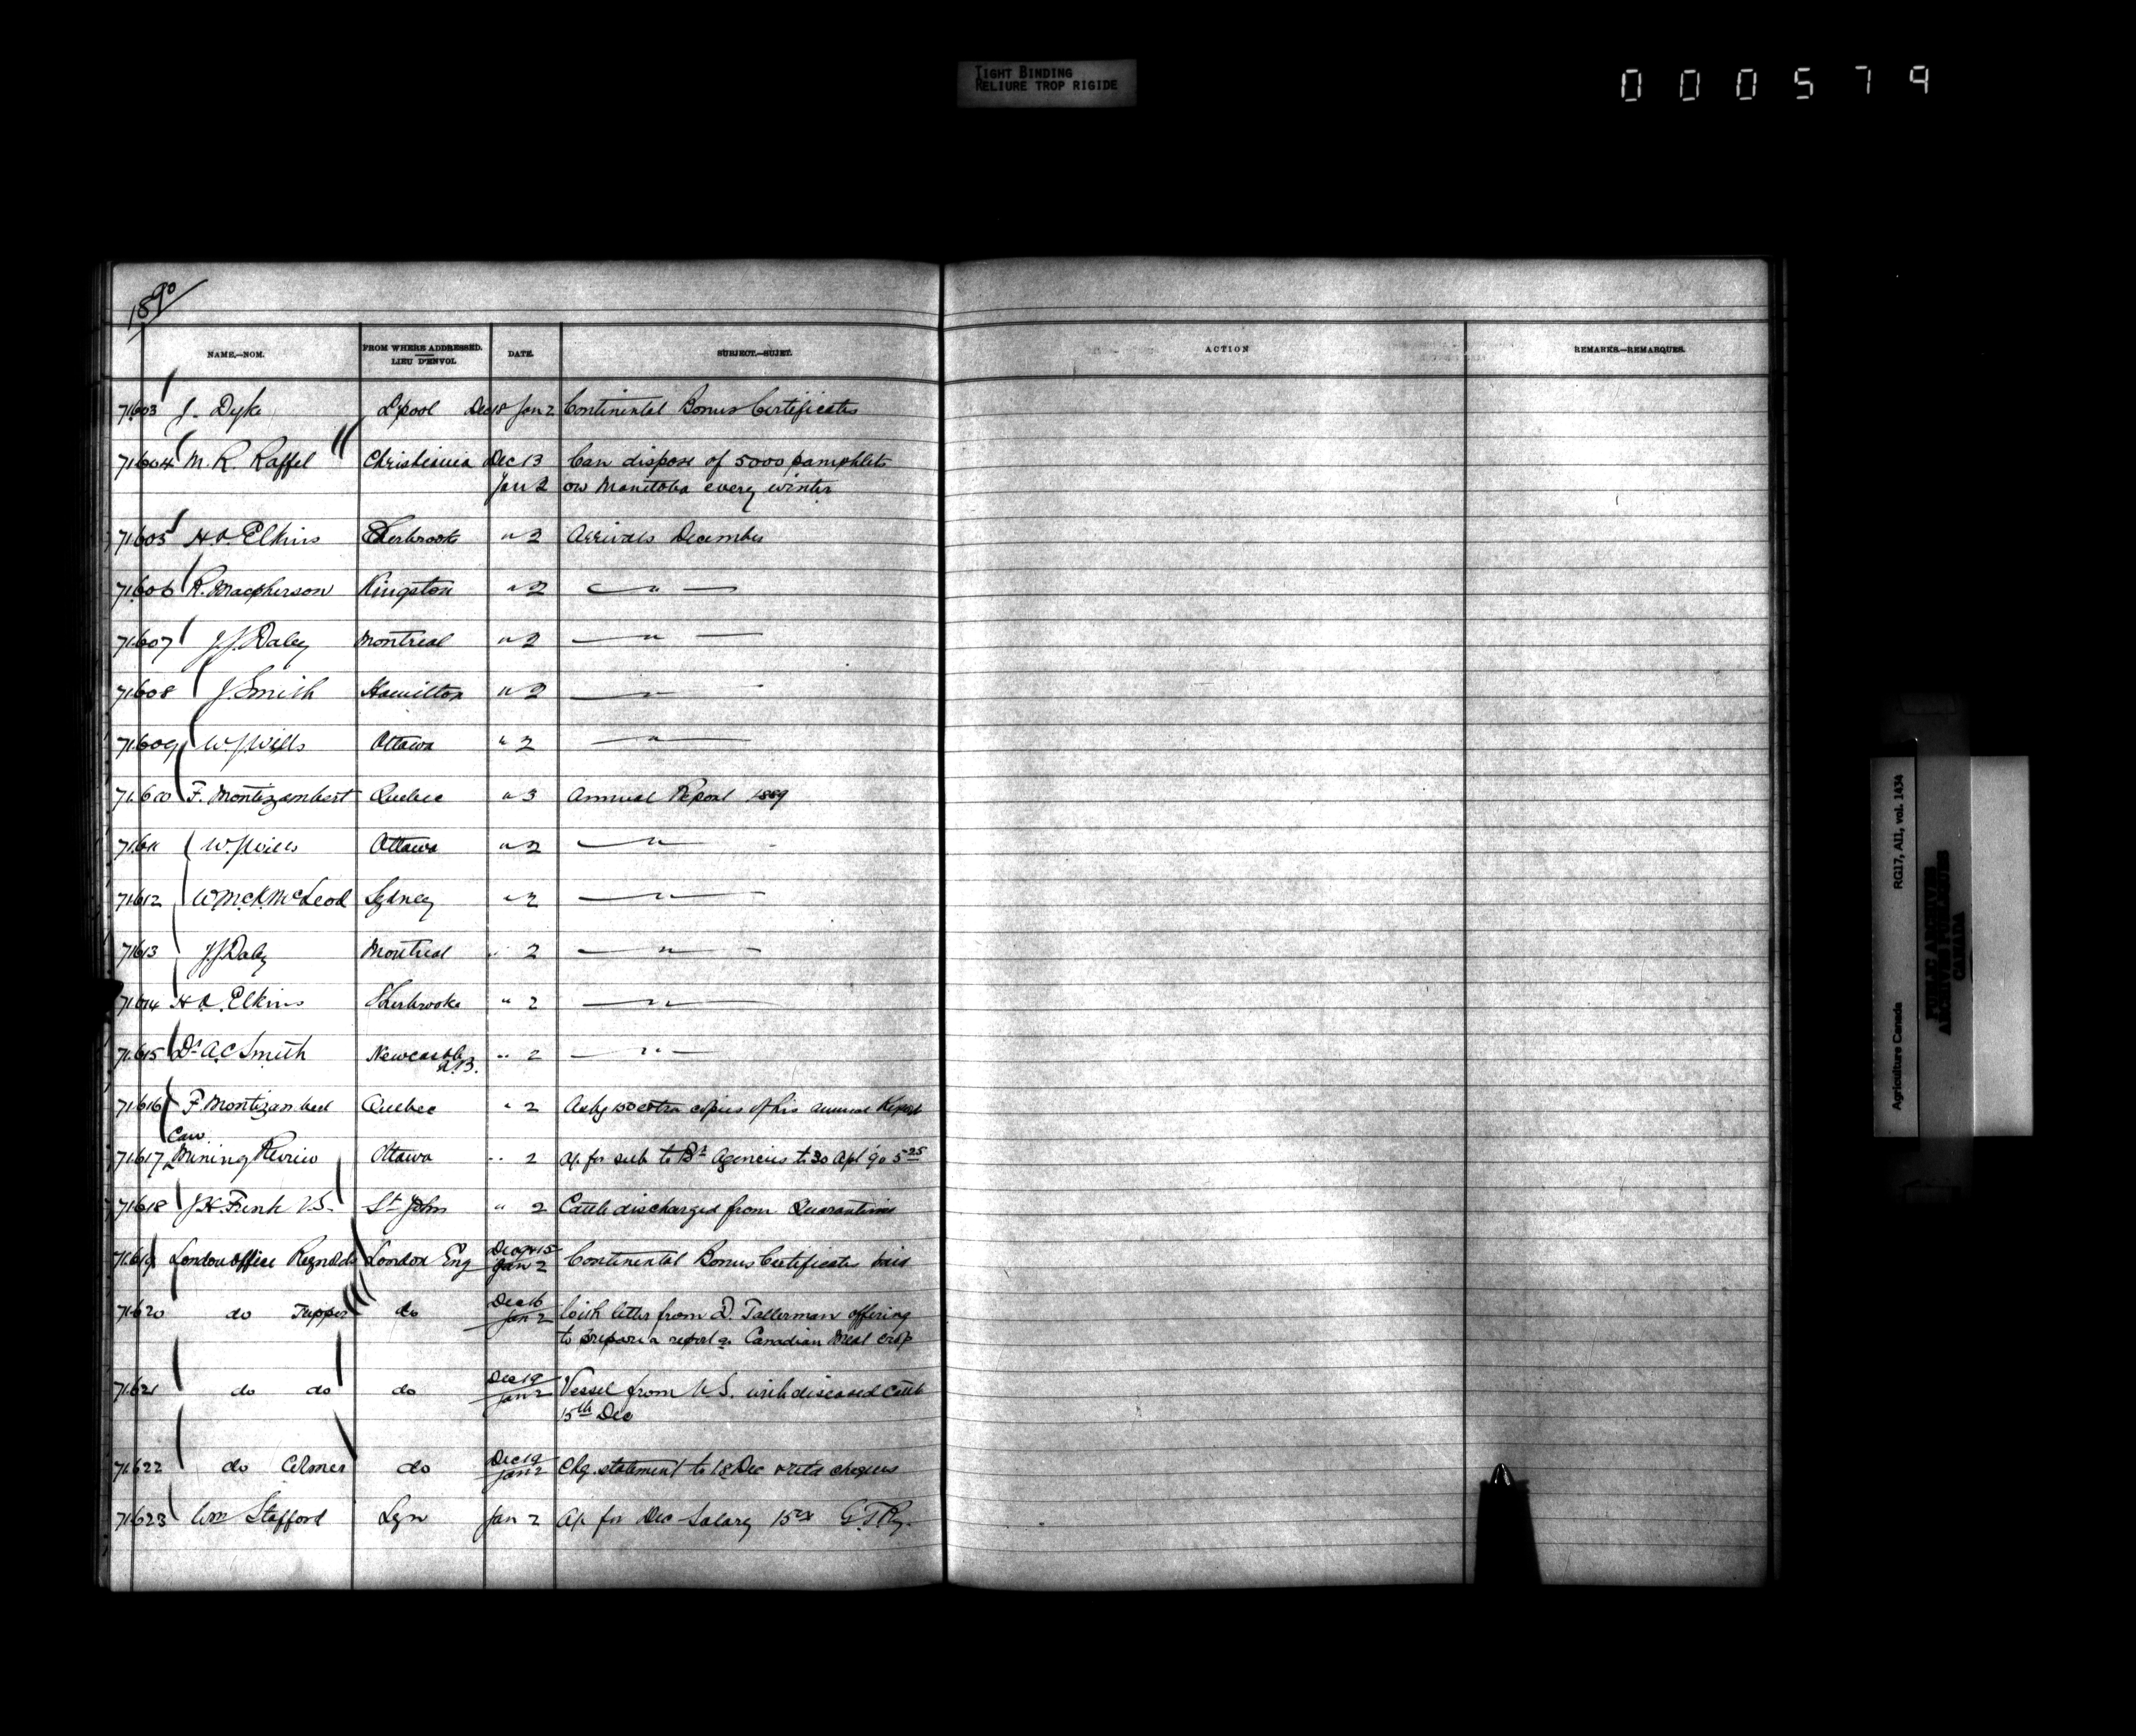 TIGHT BINDING
RELIURE TROP RIGIDE
000579
1890
NAME.—NOM. FROM WHERE ADDRESSED. LIEU D'ENVOI. DATE. SUBJECT.—SUJET. ACTION REMARKS.—REMARQUES.
71603 J. Dyke L'pool Dec 18 Jan 2 Continental Bonus Certificates
71604 M. R. Raffel Christiania Dec 13 Can dispose of 5000 pamphlets
Jan 2 on Manitoba every winter
71605 H.A. Elkins Sherbrooke " 2 Arrivals December
71606 R. Macpherson Kingston " 2 — " —
71607 J.J. Daley Montreal " 2 — " —
71608 J. Smith Hamilton " 2 — " —
71609 W.J. Wills Ottawa " 2 — " —
71610 F. Montizambert Quebec " 3 Annual Report 1889
71611 W.J. Wills Ottawa " 2 — " —
71612 W McK McLeod Sydney " 2 — " —
71613 J.J. Daley Montreal " 2 — " —
71614 H A. Elkins Sherbrooke " 2 — " —
71615 Dr A.C Smith Newcastle N.B. " 2 — " —
71616 F. Montizambert Quebec " 2 Askg 150 extra copies of his annual Report
Can.
71617 Mining Review Ottawa " 2 a/c for sub to Bh Agencies to 30 Apl 90 5 25
71618 J H Frink V.S. St John " 2 Cattle discharged from Quarantine
71619 London office Reynolds London Eng Dec 9 & 15 Jan 2 Continental Bonus Certificates paid
71620 do Tupper do Dec 16 Jan 2 With letter from D. Tallerman offering
to prepare a report on Canadian Meat crop
71621 do do do Dec 19 Jan 2 Vessel from U S. with diseased Cattle
15th Dec
71622 do Colmer do Dec 19 Jan 2 Chq. statement to 18 Dec & retd cheques
71623 Wm Stafford Lyn Jan 2 A/c for Dec Salary G.T.Ry.
Agriculture Canada RG17, AI1, vol. 1434
PUBLIC ARCHIVES
ARCHIVES PUBLIQUES
CANADA